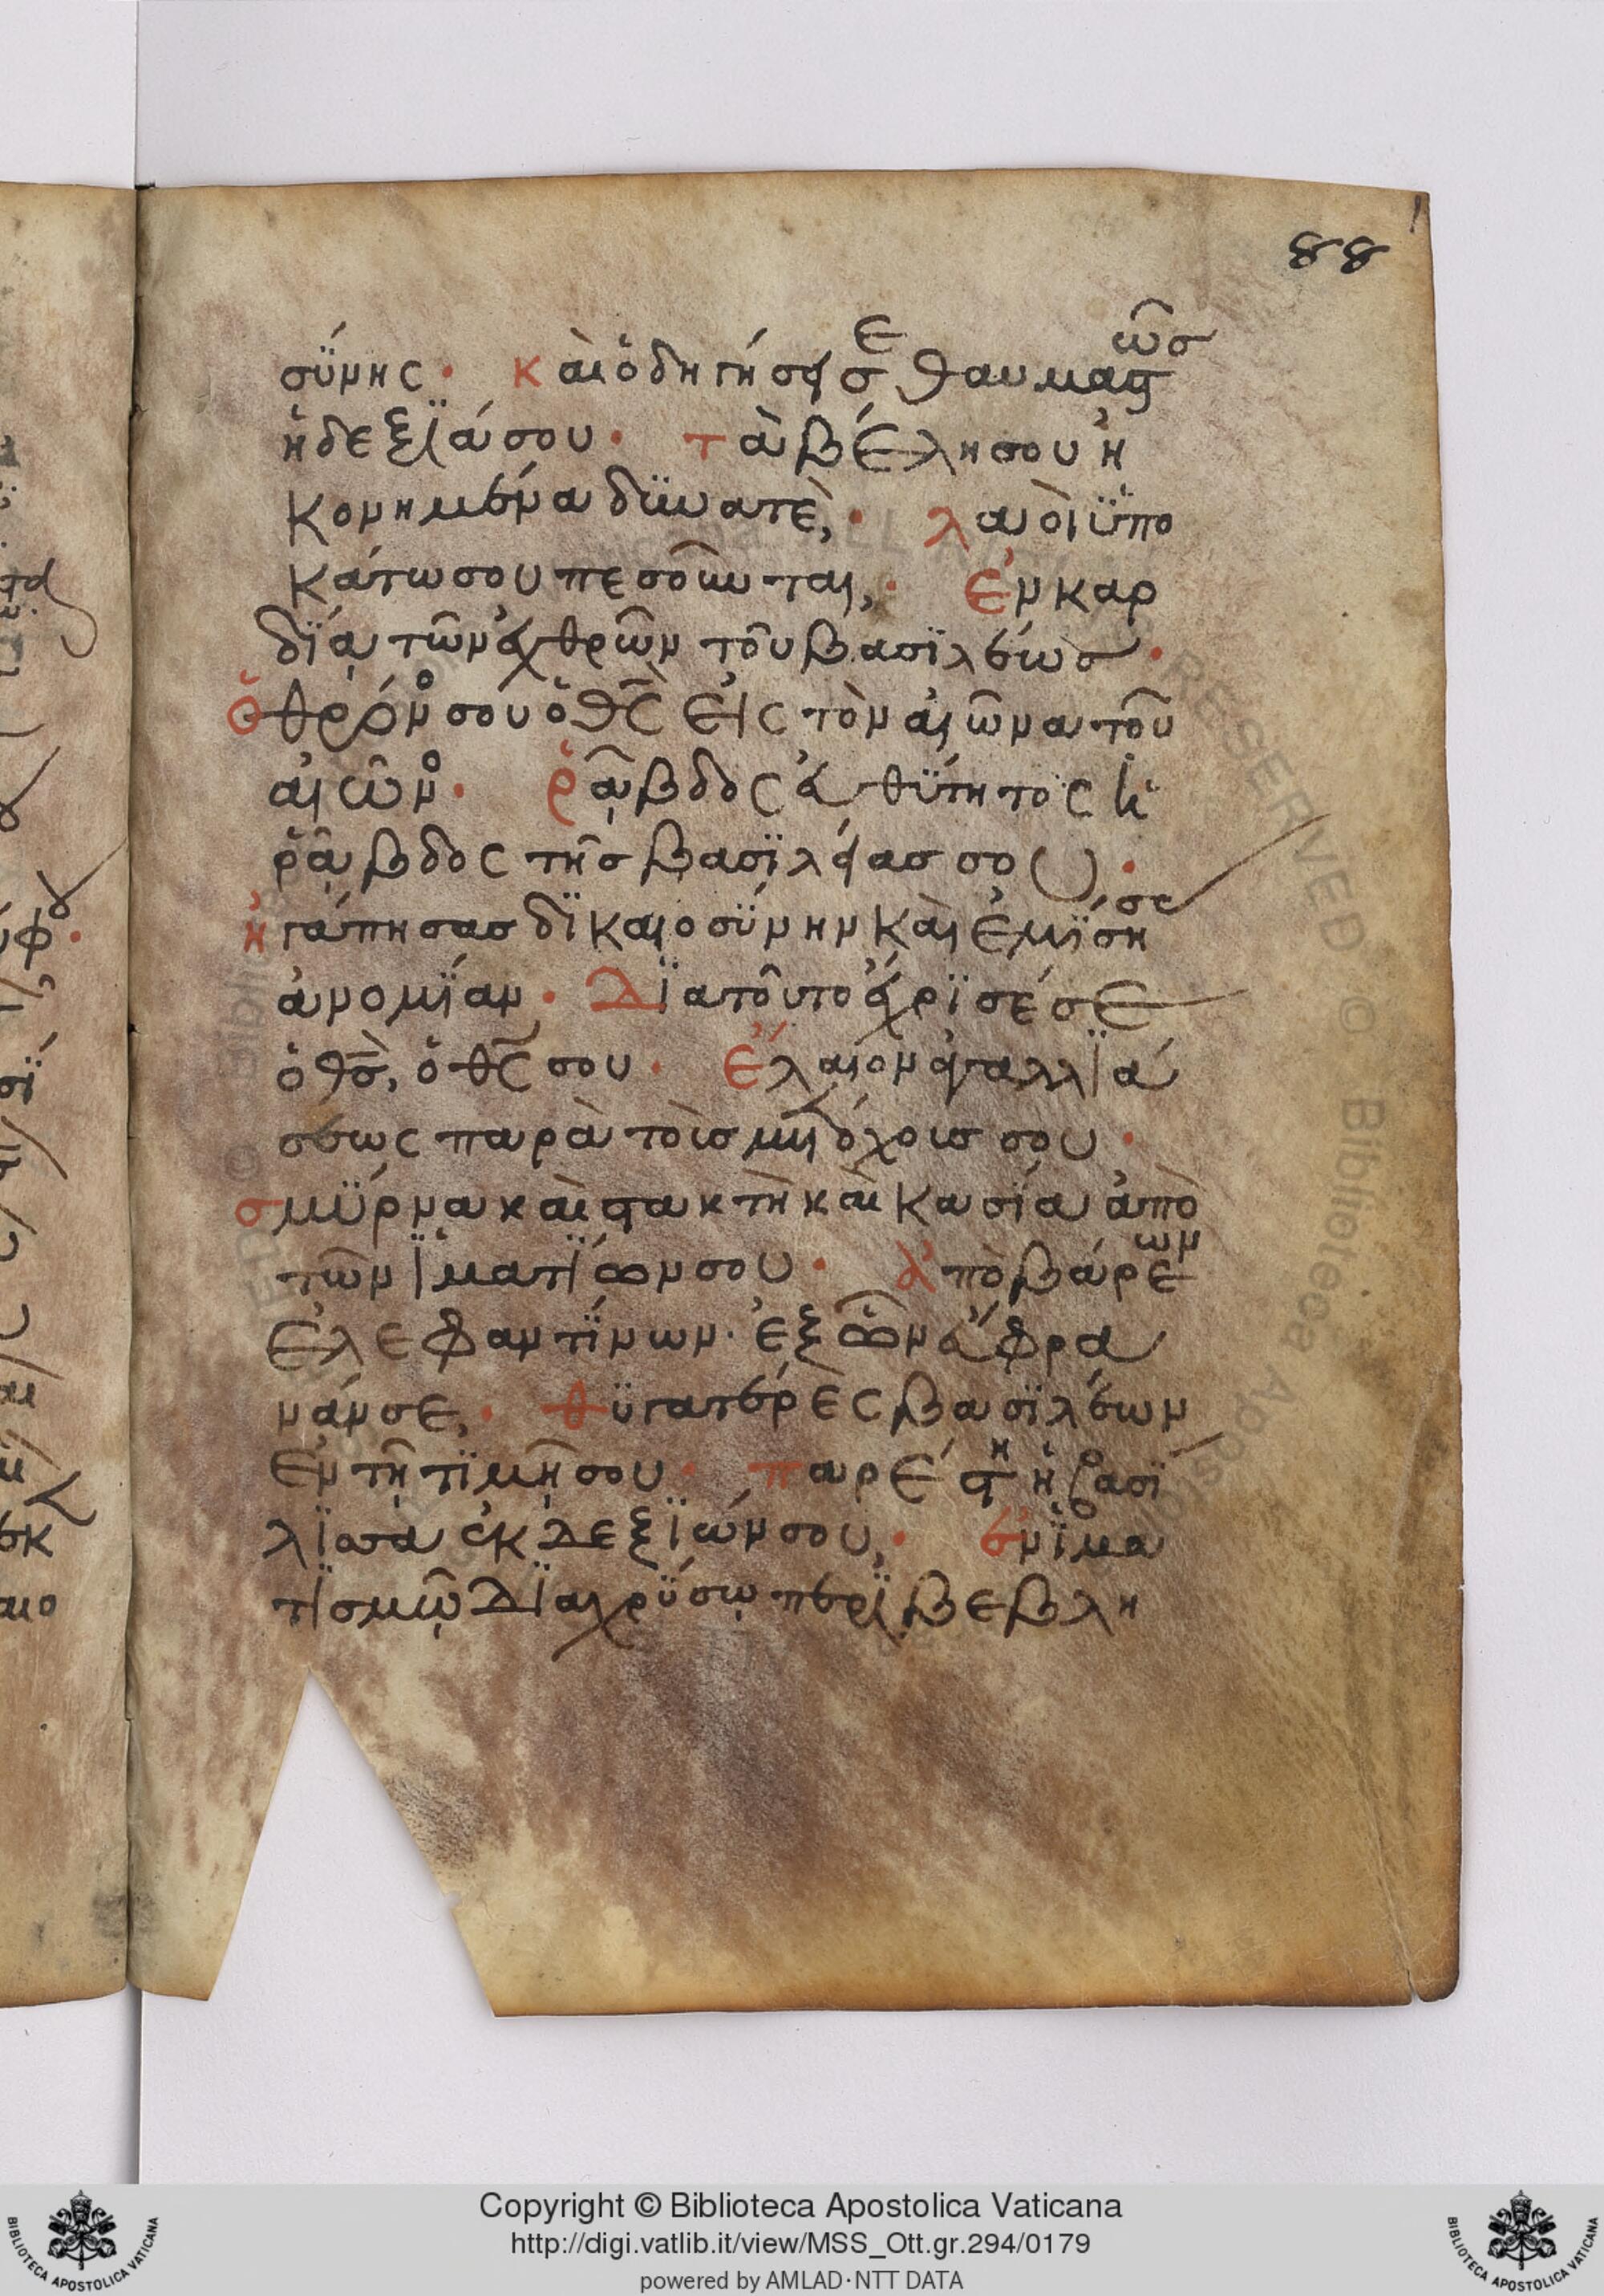 88
σύνης· καὶ ὁδηγήσει σε θαυμαστῶς
ἡ δεξϊά σου· τὰ βέλη σου ἠ
κονημένα δϋνατὲ,· λαοὶ ὑπο
κάτω σου πεσοῦνται,· ἐν καρ
δίᾳ τῶν ἐχθρῶν τοῦ βασϊλέως·
ὁ θρόνος σου ὁ θς εἰς τὸν αἰῶνα τοῦ
αἰῶνος· ῥάβδος εὐθύτητος ἡ
ῥάβδος τῆς βασϊλείας σου·
ἠγάπησας δϊκαιοσύνην καὶ ἐμίσησας
ἀνομίαν· διὰ τοῦτο ἔχρϊσέ σε
ὁ θς, ὁ θς σου· ἔλαιον ἀγαλλϊά
σεως παρὰ τοὺς μετόχοις σου·
σμύρνα καὶ στακτὴ καὶ κασία ἀπὸ
τῶν ἱματίων σου· ἀπὸ βάρεων
ἐλεφαντίνων· ἐξ ὧν εὔφρα
νάν σε,· θϋγατέρες βασϊλέων
ἐν τῇ τϊμῇ σου· παρέστη ἡ βασϊ
λισσα ἐκ δεξϊών σου,· ἐν ἱμα
τϊσμῷ διαχρύσῳ περϊβεβλη
Copyright © Biblioteca Apostolica Vaticana
http://digi.vatlib.it/view/MSS_Ott.gr.294/0179
powered by AMLAD·NTT DATA
BIBLIOTECA APOSTOLICA VATICANA
BIBLIOTECA APOSTOLICA VATICANA